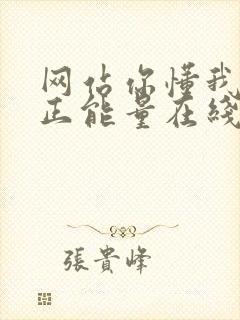 网站你懂我
正能量在线
張貴峰